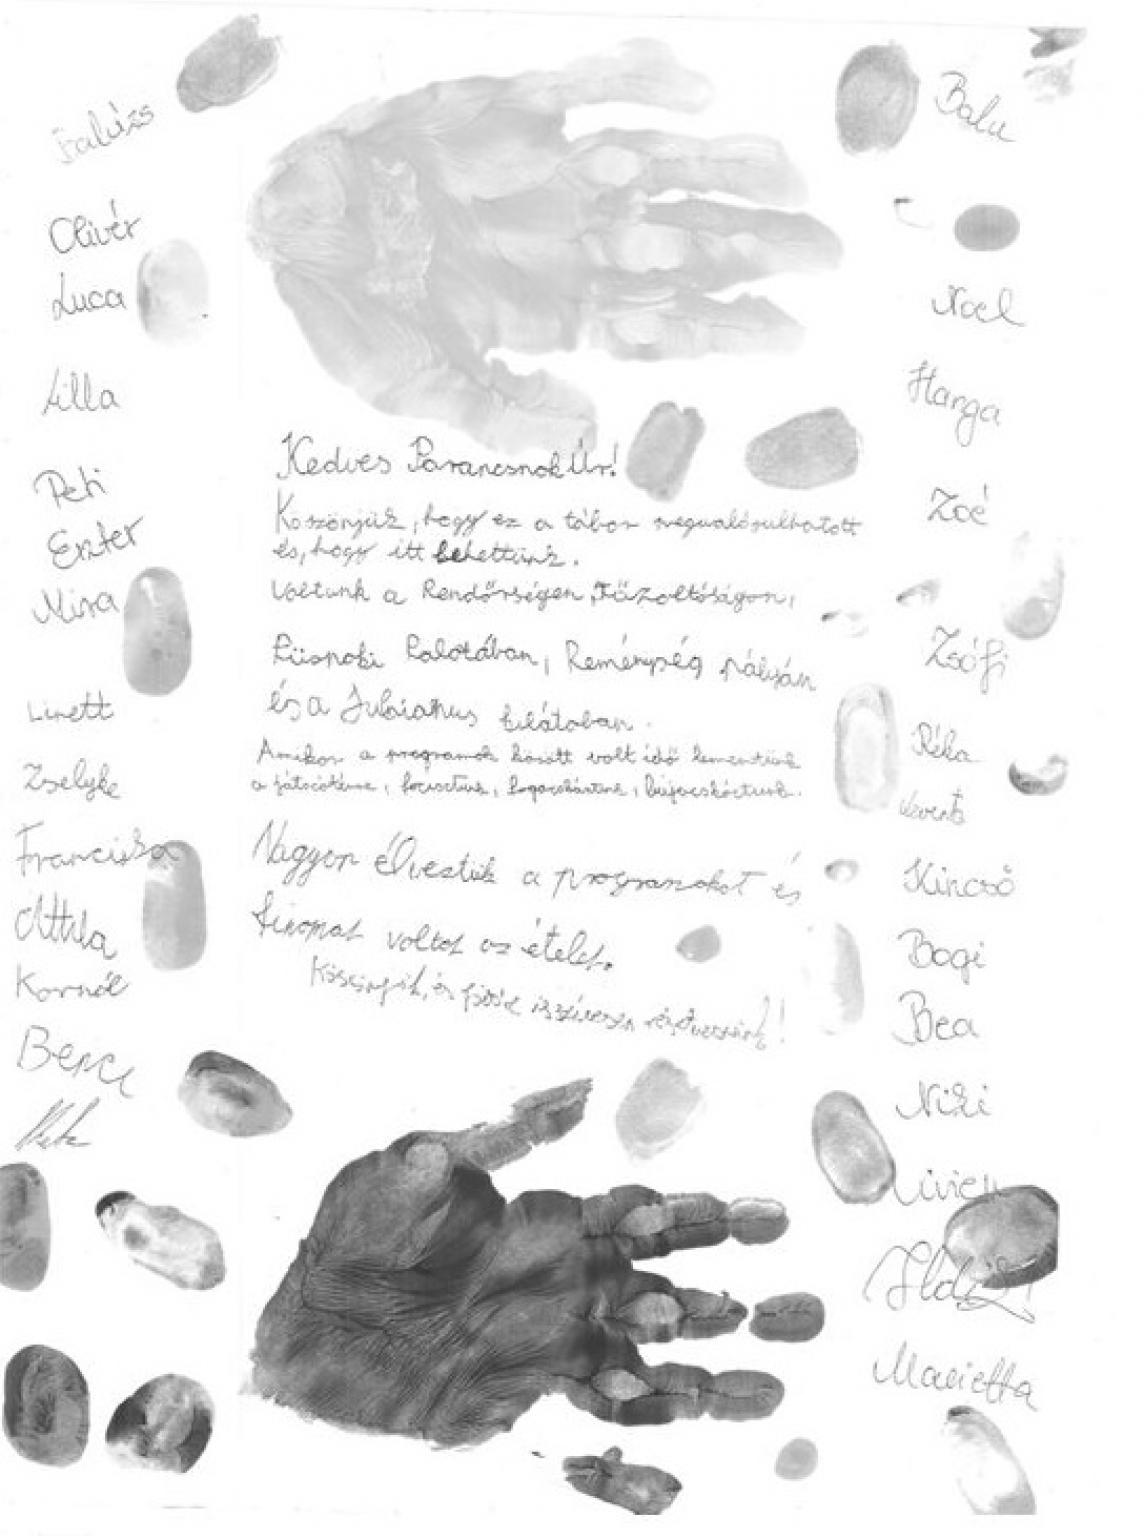 Balázs
Olivér
Luca
Lilla
Peti
Eszter
Mira
Linett
Zselyke
Franciska
Attila
Kornél
Bence
Kedves Parancsnok Úr!
Köszönjük, hogy ez a tábor megvalósulhatott
és, hogy itt lehettünk.
Voltunk a Rendőrségen, Tűzoltóságon,
Püspöki Palotában, Reménység pályán
és a Julianus kilátóban.
Amikor a programok között volt idő lementünk
a játszótérre, fociztunk, fogócskáztunk, bújócskáztunk.
Nagyon élveztük a programokat és
finomak voltak az ételek.
Köszönjük, és jövőre is szívesen részt vennénk!
Balu
Noel
Hanga
Zoé
Zsófi
Réka
Levente
Kincső
Bogi
Bea
Niki
Livien
Ildi
Marietta